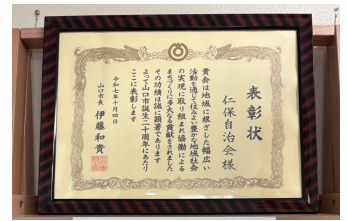 表彰状
仁保自治会様
貴会は地域に根ざした幅広い
活動を通じて住みよい豊かな地域社会
の実現に取り組まれ協働による
まちづくりに多大なる貢献をされました
その功績は誠に顕著であります
よって山口市誕生二十周年にあたり
ここに表彰します
令和七年十月四日
山口市長 伊藤和貴